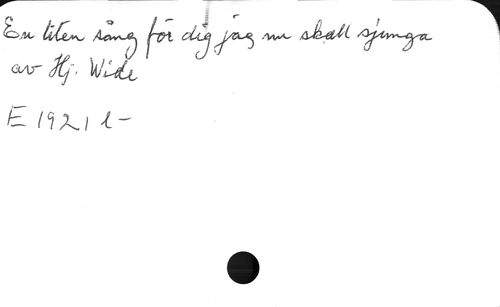 En liten sång för dig jag nu skall sjunga
av Hj. Wide
E 1921 l-